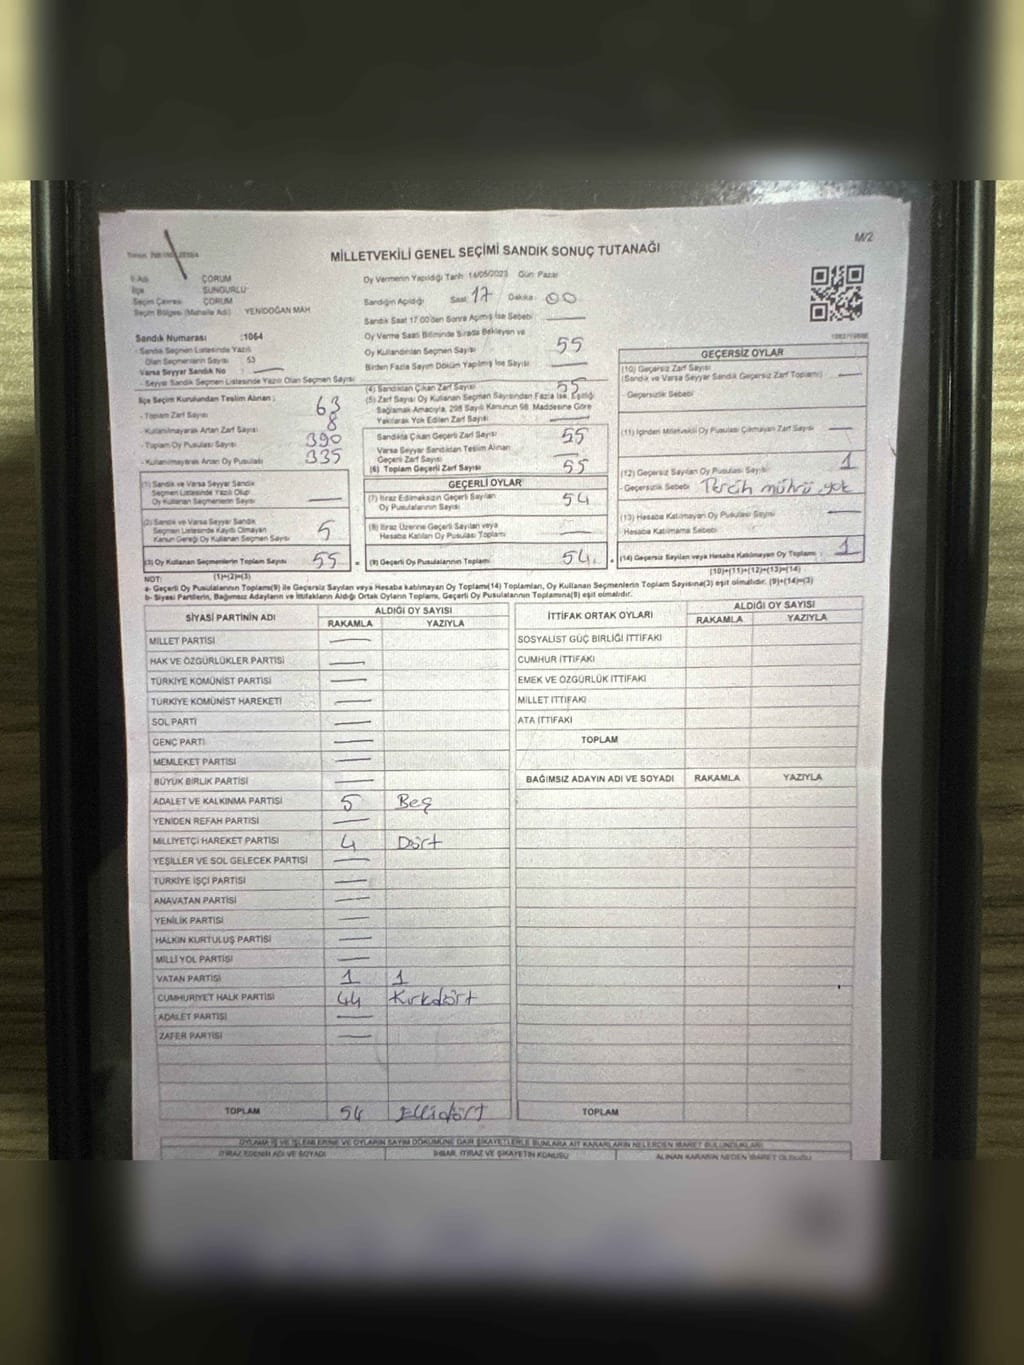 M/2
MİLLETVEKİLİ GENEL SEÇİMİ SANDIK SONUÇ TUTANAĞI
İl Adı : ÇORUM
İlçe : SUNGURLU
Seçim Çevresi : ÇORUM
Seçim Bölgesi (Mahalle Adı) : YENİDOĞAN MAH
Sandık Numarası :1064
- Sandık Seçmen Listesinde Yazılı
Olan Seçmenlerin Sayısı : 53
Varsa Seyyar Sandık No : —
- Seyyar Sandık Seçmen Listesinde Yazılı Olan Seçmen Sayısı
İlçe Seçim Kurulundan Teslim Alınan ;
- Toplam Zarf Sayısı : 63
- Kullanılmayarak Artan Zarf Sayısı : 8
- Toplam Oy Pusulası Sayısı : 390
- Kullanılmayarak Artan Oy Pusulası : 335
(1) Sandık ve Varsa Seyyar Sandık
Seçmen Listesinde Yazılı Olup
Oy Kullanan Seçmenlerin Sayısı —
(2) Sandık ve Varsa Seyyar Sandık
Seçmen Listesinde Kaydı Olmayan
Kanun Gereği Oy Kullanan Seçmen Sayısı 5
(3) Oy Kullanan Seçmenlerin Toplam Sayısı 55
(1)+(2)=(3)
Oy Vermenin Yapıldığı Tarih: 14/05/2023 Gün: Pazar
Sandığın Açıldığı Saat: 17 Dakika: 00
Sandık Saat 17:00'den Sonra Açılmış İse Sebebi : —
Oy Verme Saati Bitiminde Sırada Bekleyen ve
Oy Kullandırılan Seçmen Sayısı : 55
Birden Fazla Sayım Döküm Yapılmış İse Sayısı : —
(4) Sandıktan Çıkan Zarf Sayısı : 55
(5) Zarf Sayısı Oy Kullanan Seçmen Sayısından Fazla İse, Eşitliği
Sağlamak Amacıyla, 298 Sayılı Kanunun 98. Maddesine Göre
Yakılarak Yok Edilen Zarf Sayısı : —
Sandıkta Çıkan Geçerli Zarf Sayısı : 55
Varsa Seyyar Sandıktan Teslim Alınan
Geçerli Zarf Sayısı : —
(6) Toplam Geçerli Zarf Sayısı : 55
GEÇERLİ OYLAR
(7) İtiraz Edilmeksizin Geçerli Sayılan
Oy Pusulalarının Sayısı : 54
(8) İtiraz Üzerine Geçerli Sayılan veya
Hesaba Katılan Oy Pusulası Toplamı : —
(9) Geçerli Oy Pusulalarının Toplamı : 54
GEÇERSİZ OYLAR
(10) Geçersiz Zarf Sayısı
(Sandık ve Varsa Seyyar Sandık Geçersiz Zarf Toplamı) : —
- Geçersizlik Sebebi :
(11) İçinden Milletvekili Oy Pusulası Çıkmayan Zarf Sayısı : —
(12) Geçersiz Sayılan Oy Pusulası Sayısı : 1
- Geçersizlik Sebebi : Tercih mührü yok
(13) Hesaba Katılmayan Oy Pusulası Sayısı : —
Hesaba Katılmama Sebebi :
(14) Geçersiz Sayılan veya Hesaba Katılmayan Oy Toplamı : 1
(10)+(11)+(12)+(13)=(14)
NOT:
a- Geçerli Oy Pusulalarının Toplamı(9) ile Geçersiz Sayılan veya Hesaba katılmayan Oy Toplamı(14) Toplamları, Oy Kullanan Seçmenlerin Toplam Sayısına(3) eşit olmalıdır. (9)+(14)=(3)
b- Siyasi Partilerin, Bağımsız Adayların ve İttifakların Aldığı Ortak Oyların Toplamı, Geçerli Oy Pusulalarının Toplamına(9) eşit olmalıdır.
SİYASİ PARTİNİN ADI ALDIĞI OY SAYISI
RAKAMLA YAZIYLA
MİLLET PARTİSİ —
HAK VE ÖZGÜRLÜKLER PARTİSİ —
TÜRKİYE KOMÜNİST PARTİSİ —
TÜRKİYE KOMÜNİST HAREKETİ —
SOL PARTİ —
GENÇ PARTİ —
MEMLEKET PARTİSİ —
BÜYÜK BİRLİK PARTİSİ —
ADALET VE KALKINMA PARTİSİ 5 Beş
YENİDEN REFAH PARTİSİ —
MİLLİYETÇİ HAREKET PARTİSİ 4 Dört
YEŞİLLER VE SOL GELECEK PARTİSİ —
TÜRKİYE İŞÇİ PARTİSİ —
ANAVATAN PARTİSİ —
YENİLİK PARTİSİ —
HALKIN KURTULUŞ PARTİSİ —
MİLLİ YOL PARTİSİ —
VATAN PARTİSİ 1 1
CUMHURİYET HALK PARTİSİ 44 Kırkdört
ADALET PARTİSİ —
ZAFER PARTİSİ —
TOPLAM 54 Ellidört
İTTİFAK ORTAK OYLARI ALDIĞI OY SAYISI
RAKAMLA YAZIYLA
SOSYALİST GÜÇ BİRLİĞİ İTTİFAKI
CUMHUR İTTİFAKI
EMEK VE ÖZGÜRLÜK İTTİFAKI
MİLLET İTTİFAKI
ATA İTTİFAKI
TOPLAM
BAĞIMSIZ ADAYIN ADI VE SOYADI RAKAMLA YAZIYLA
TOPLAM
OYLAMA İŞ VE İŞLEMLERİNE VE OYLARIN SAYIM DÖKÜMÜNE DAİR ŞİKAYETLERLE BUNLARA AİT KARARLARIN NELERDEN İBARET BULUNDUKLARI
İTİRAZ EDENİN ADI VE SOYADI İHBAR, İTİRAZ VE ŞİKAYETİN KONUSU ALINAN KARARIN NEDEN İBARET OLDUĞU